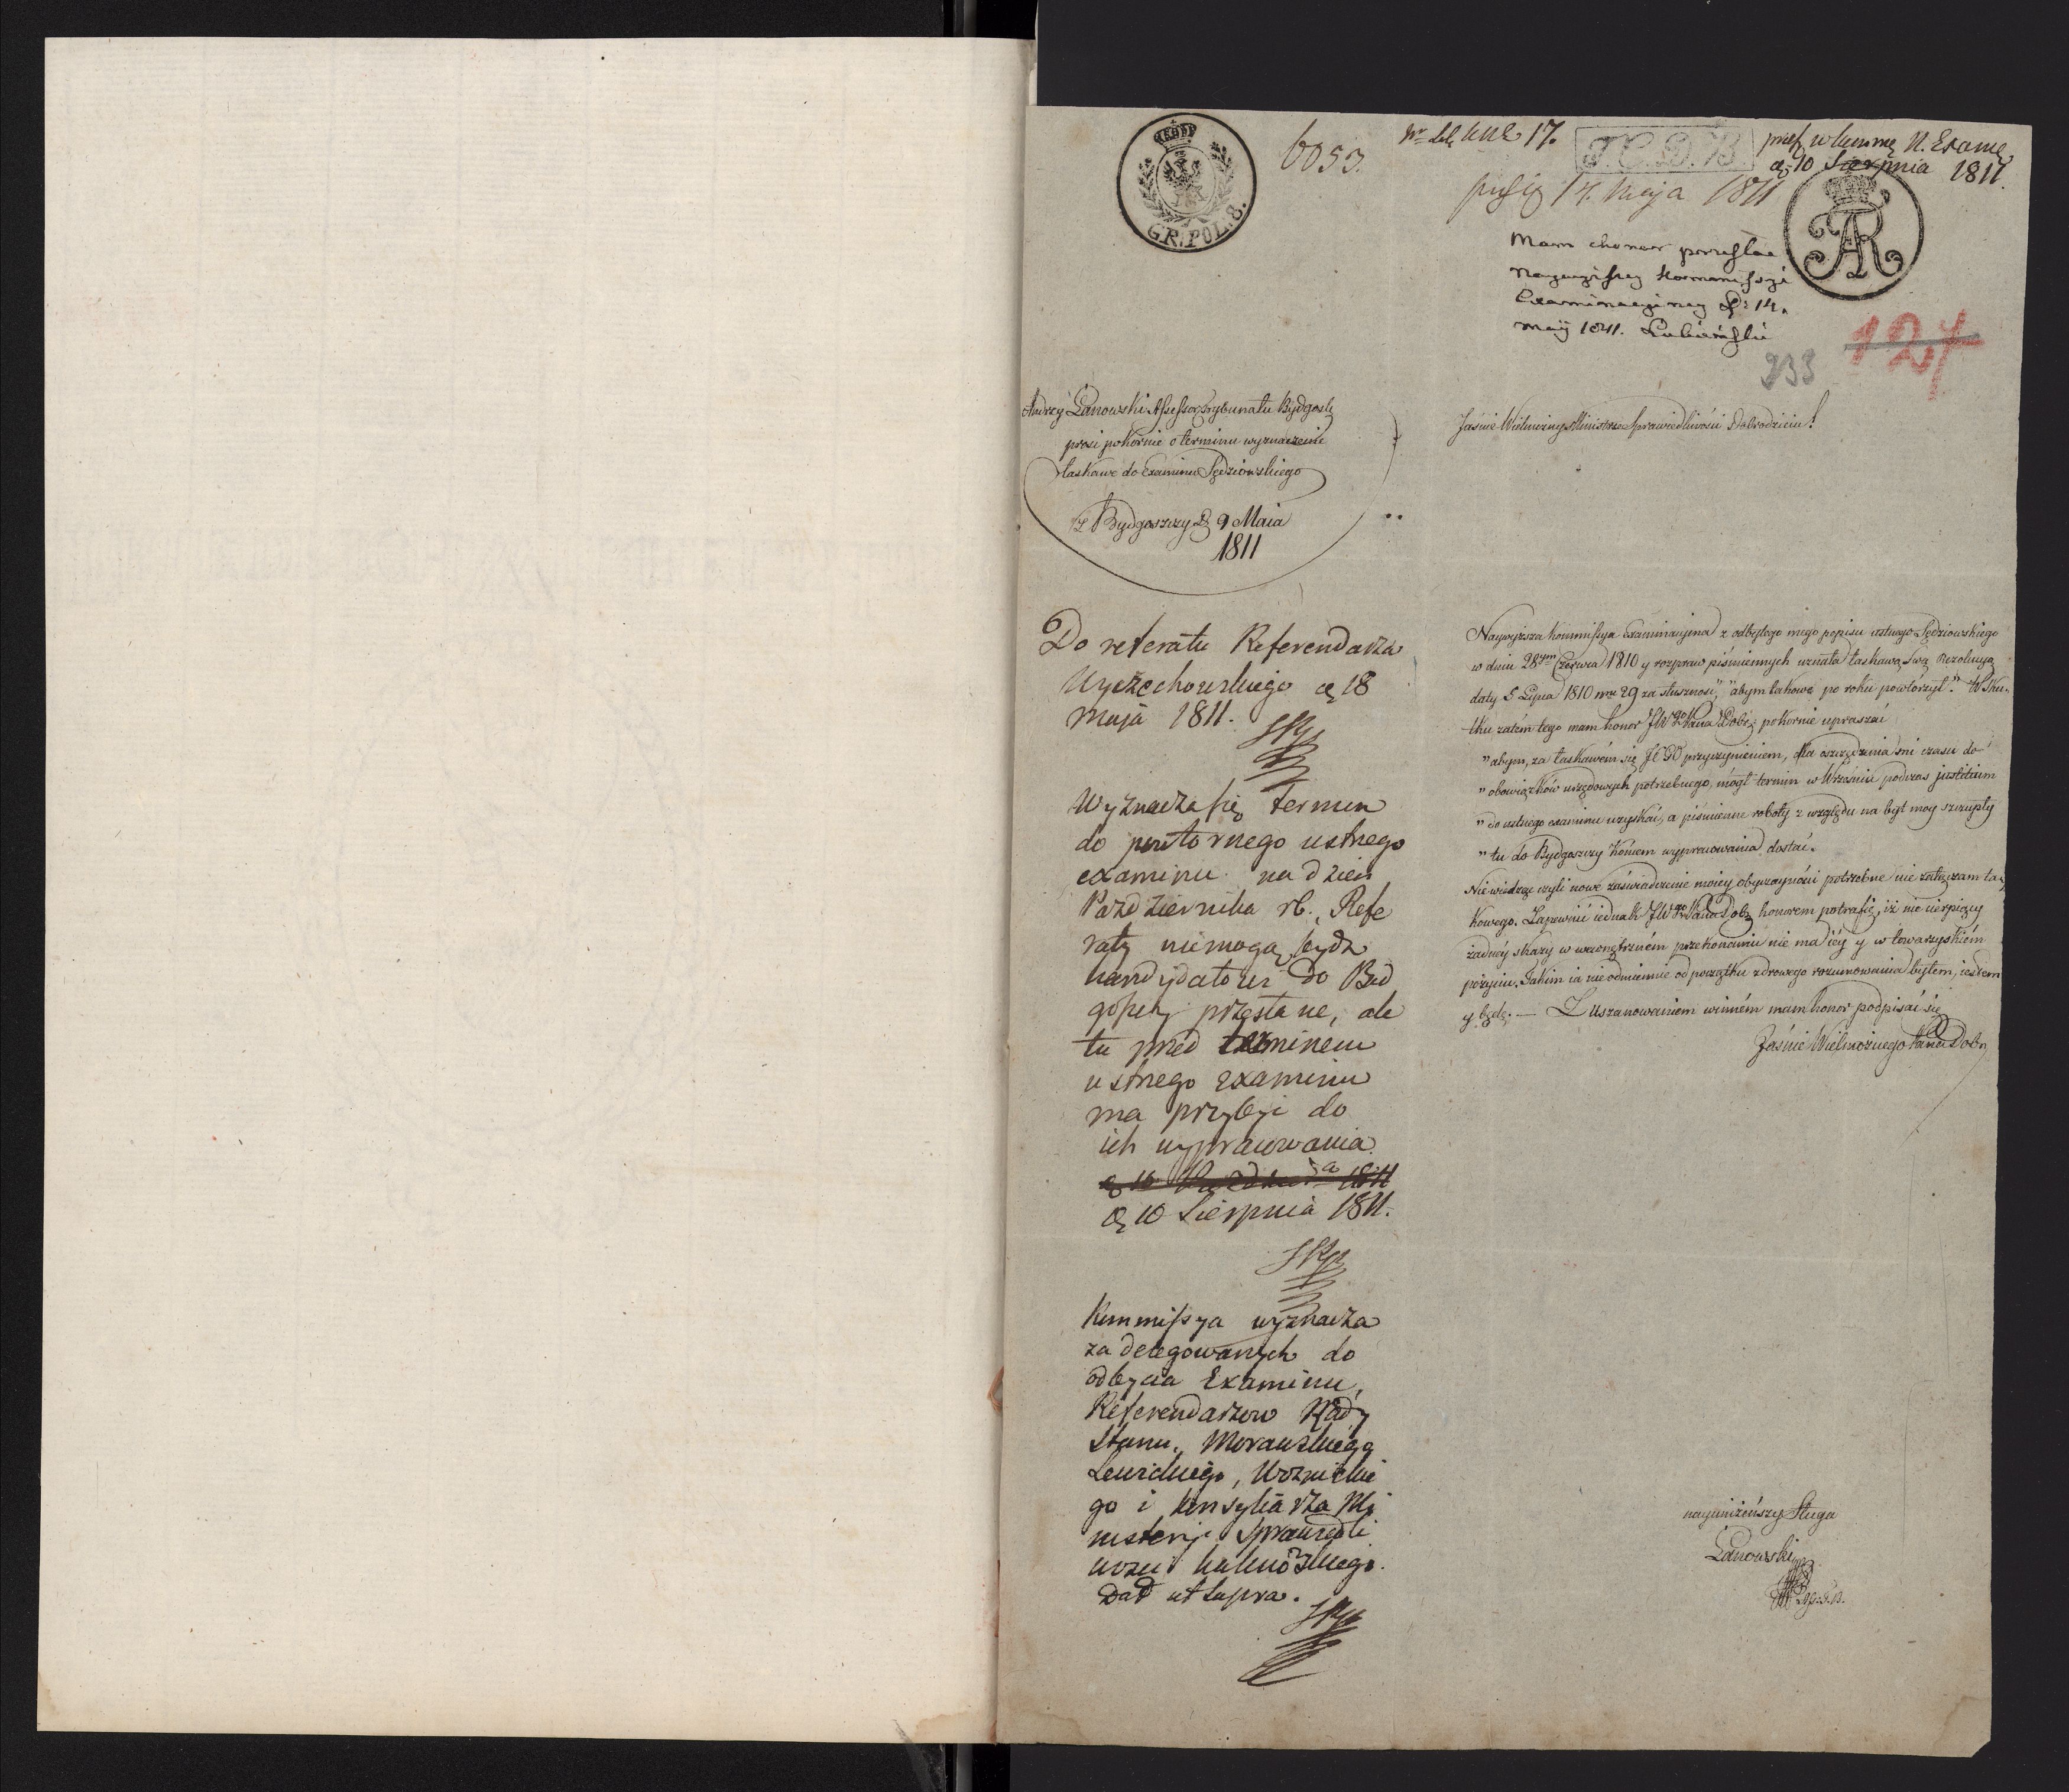 GR. POL. 8.
6053.
17.
T.C.D.B.
10 Sierpnia 1811.
14. Maja 1811
AR
Mam chonor przesłac
Naywyższey Kommissyi
Examinacyiney D: 14.
May 1811. Lubieński
127
933
Andrzy Łanowski Assessor Trybunatu Bydgosk
prosi pokornie o terminu wyznaczenie
łaskawe do Examinu Sędziowskiego
z Bydgoszczy D 9 Maia
1811
Jaśnie Wielmożny Ministrze Sprawiedliwości Dobrodzieiu!
Do referatu Referendarza
Wyczechowskiego d 18
maja 1811.
Wyznacza się termin
do powtornego ustnego
examinu na dzien
Pazdziernika rb. Refe
raty niemogą bydz
kandydatowi do Byd
goszczy przesłane, ale
tu przed terminem
ustnego examinu
ma przybyc do
ich wypracowania.
d 10 Sierpnia 1811.
Kommissya wyznacza
za delegowanych do
odbycia Examinu,
Referendarzow Rady
Stanu, Morawskiego
Lewickiego, Woznickie
go i konsyliarza Mi
nisteryi Sprawiedli
wosci
Dat ut supra.
Naywyższa kommissya Examinacyina z odbytego mego popisu ustnego Sędziowskiego
w dniu 28ym Czerwca 1810 y rozpraw piśmiennych uznała łaskawą swą Rezolucyą
daty 5 Lipca 1810 nro 29 za słuszność, "abym takowe po roku powtórzył". W sku-
tku zatém tego mam honor JWgo Pana Dobr: pokornie upraszać
"abym, za łaskawém się JWD przyczynieniem, dla oszczędzenia mi czasu do
"obowiązków urzędowych potrzebnego, mógł termin w Wrześniu podczas justitium
"do ustnego examinu uzyskać, a piśmienne roboty z względu na byt moy szczupły
"tu do Bydgoszczy końcem wypracowania dostać.
Niewiedząc czyli nowe zaświadczenie moiéy obyczayności potrzebne nie załączam ta-
kowego. Zapewnić iednak JWgo Pana Dobr honorem potrafię, iż nie cierpiący
żadnéy skazy w wewnętrzném przekonaniu nie ma iéy y w towarzyskiém
pożyciu. Jakim ia nieodmiennie od początku zdrowego rozumowania byłem, iestem
y będę. — Z uszanowaniem winném mam honor podpisać się
Jaśnie Wielmożnego Pana Dobr
nayuniżeńszy Sługa
Łanowski